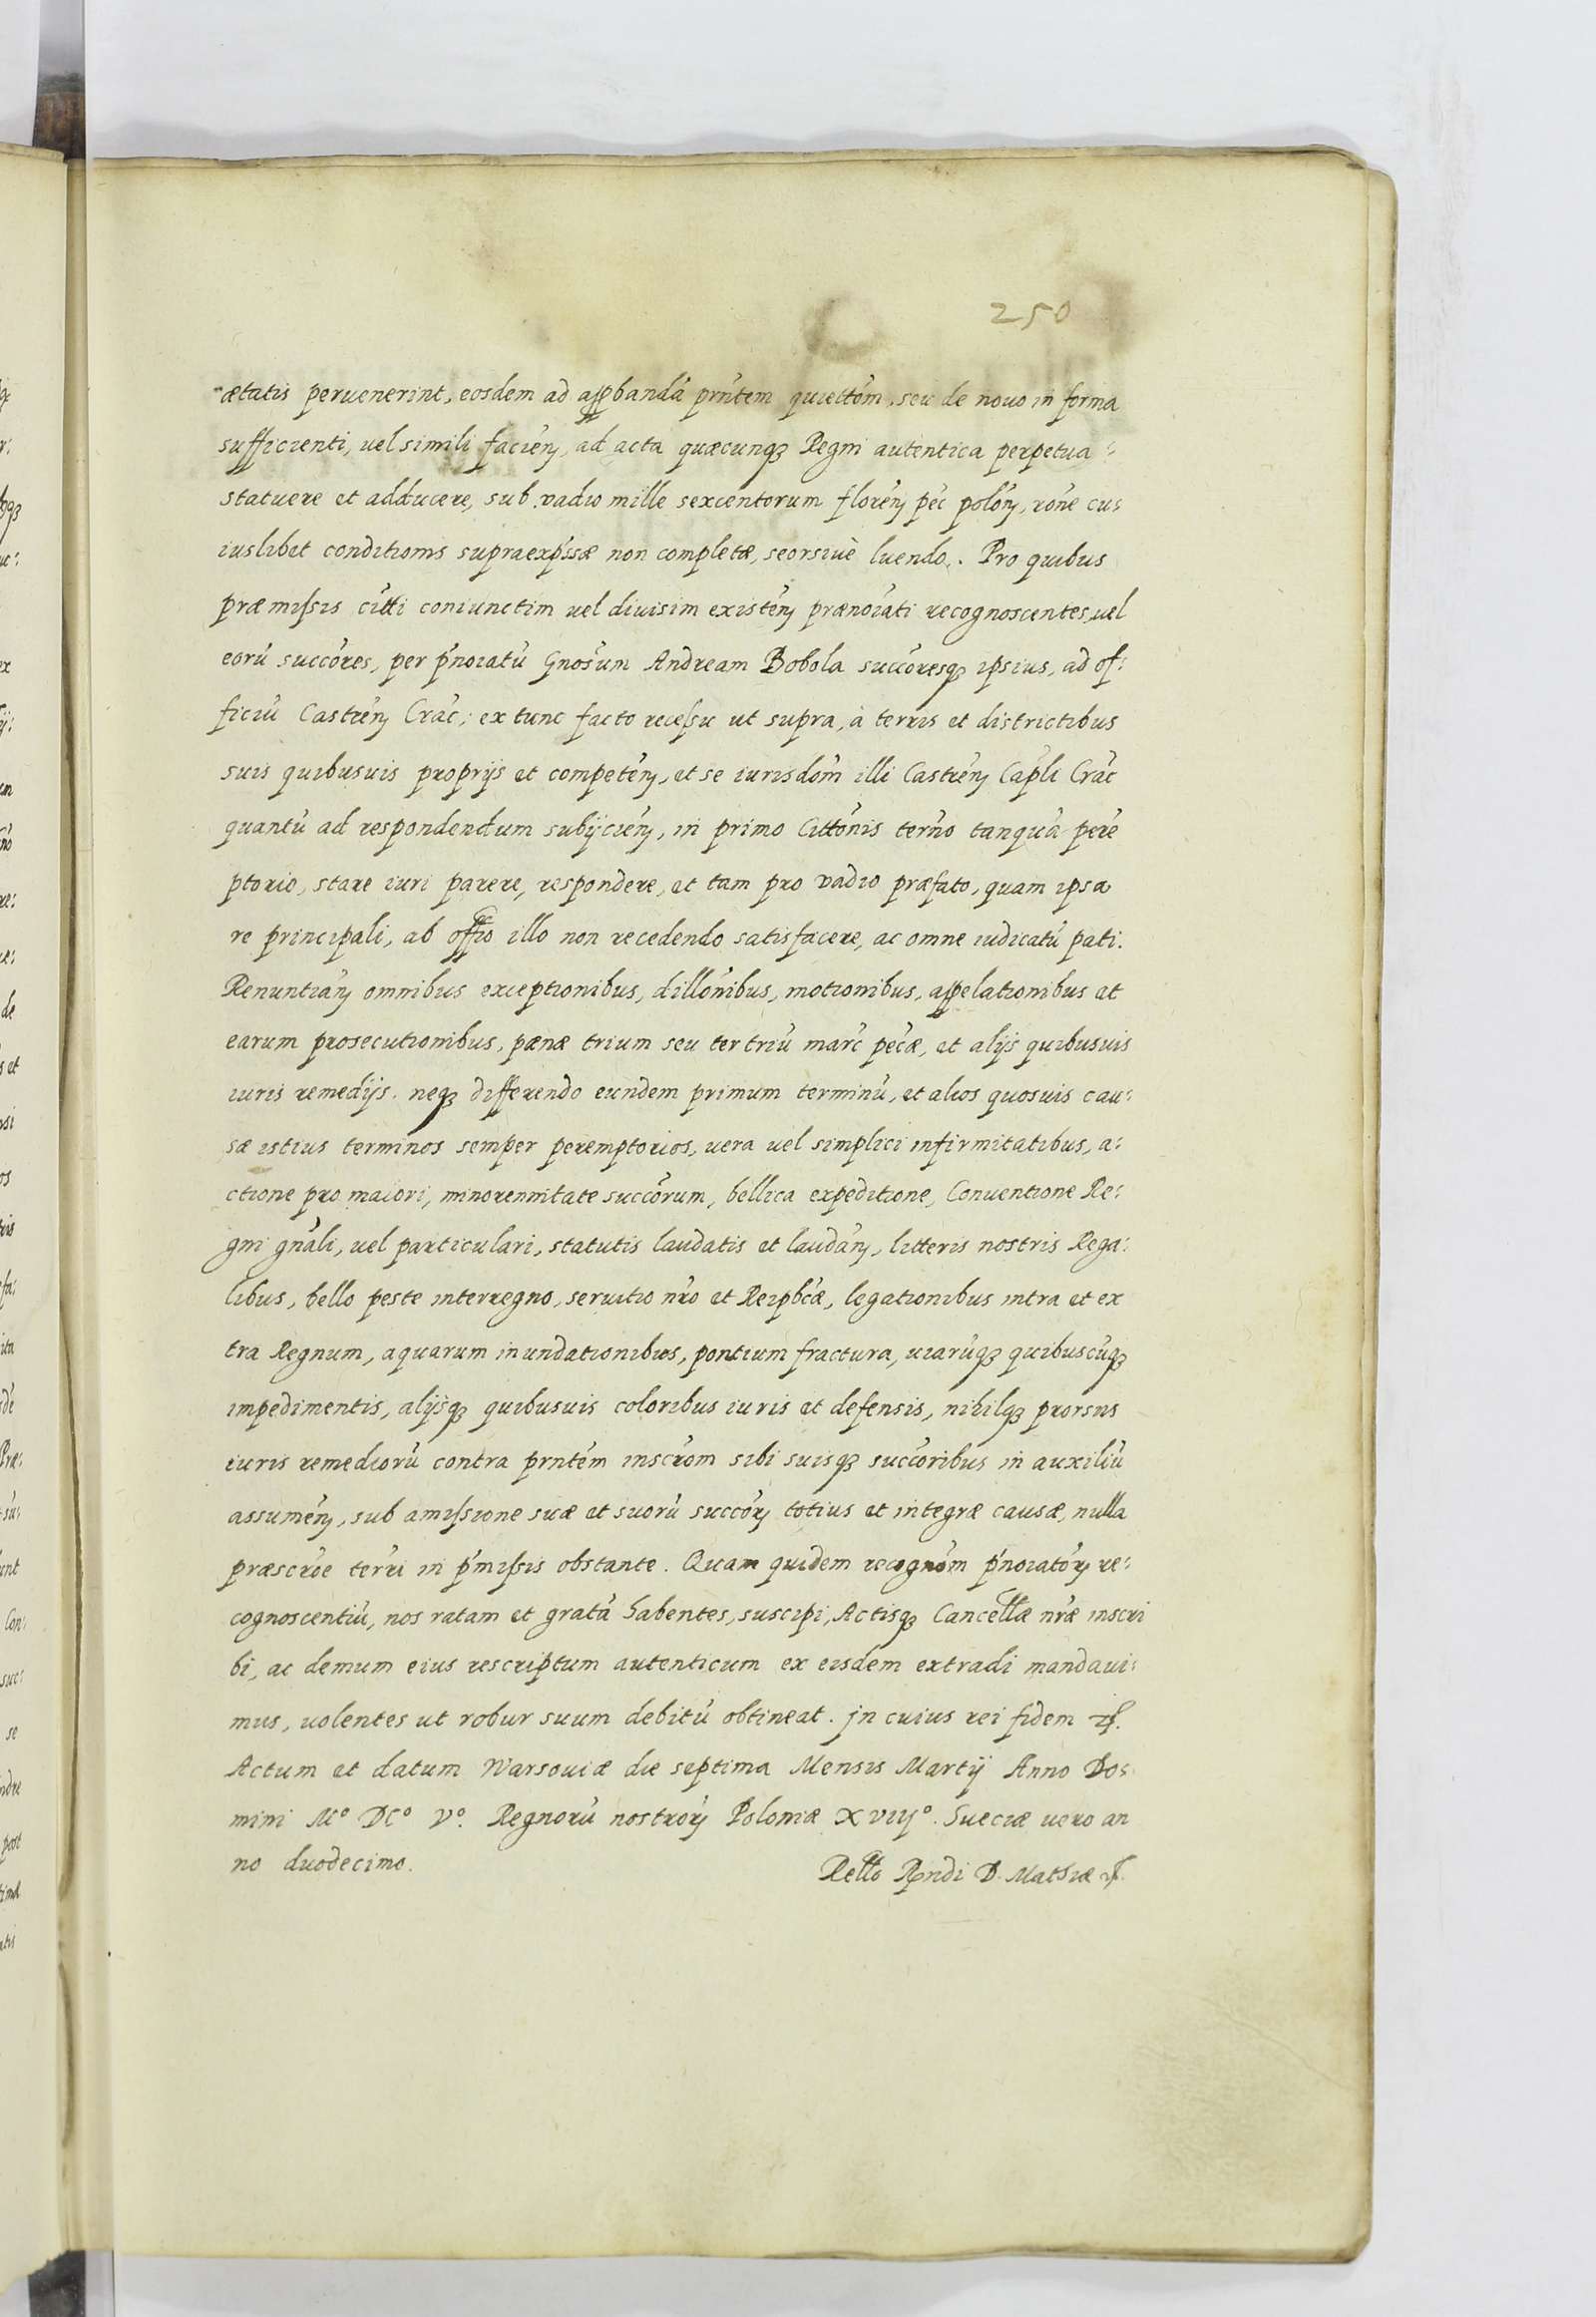 250
ætatis peruenerint, eosdem ad apꝓbandã prñtem quiettõm, seu de nouo in forma
sufficienti, uel simili facieñ, ad acta quæcunqȝ Regni autentica perpetua:
statuere et adducere, sub vadio mille sexcentorum floreñ pec̃ poloñ, rõne cu:
iuslibet conditionis supraexp̃ssæ non completæ, seorsiuè luendo. Pro quibus
præmissis citti coniunctim uel diuisim existeñ prænoĩati recognoscentes, uel
eorũ succõres, per p̃noĩatũ Gnosũm Andream Bobola succõresqȝ ipsius, ad of:
ficiũ Castreñ Crac̃; ex tunc facto recessu ut supra, à terris et districtibus
suis quibusuis proprijs et competeñ, et se iurisdõm illi Castreñ Capl̃i Crac̃
quantũ ad respondendum subijcieñ, in primo Cittõnis terño tanquã perẽ
ptorio, stare iuri parere, respondere, et tam pro vadio præfato, quam ipsa
re principali, ab offio illo non recedendo satisfacere, ac omne iudicatũ pati.
Renuntiañ omnibus exceptionibus, dillõnibus, motionibus, appelationibus et
earum prosecutionibus, pænæ trium seu ter triũ marc̃ pec̃æ, et alijs quibusuis
iuris remedijs. neqȝ differendo eundem primum terminũ, et alios quosuis cau:
sæ istius terminos semper peremptorios, uera uel simplici infirmitatibus, a:
ctione pro maiori, minorennitate succõrum, bellica expeditione, Conuentione Re:
gni gnãli, uel particulari, statutis laudatis et laudañ, litteris nostris Rega:
libus, bello peste interregno, seruitio nr̃o et Reipbc̃æ, legationibus intra et ex
tra Regnum, aquarum inundationibus, pontium fractura, uiarũqȝ quibuscũqȝ
impedimentis, alijsqȝ quibusuis coloribus iuris et defensis, nihilqȝ prorsus
iuris remediorũ contra prntẽm inscrõm sibi suisqȝ succõribus in auxiliũ
assumeñ, sub amissione suæ et suorũ succõrꝫ totius et integræ causæ, nulla
præscrõe terr̃i in p̃missis obstante. Quam quidem recognõm p̃noĩatõrꝫ re:
cognoscentiũ, nos ratam et gratã habentes, suscipi, Actisqȝ Cancellæ nr̃æ inscri
bi, ac demum eius rescriptum autenticum ex eisdem extradi mandaui:
mus, uolentes ut robur suum debitũ obtineat. jn cuius rei fidem ꝛc̃.
Actum et datum Warsouiæ die septima Mensis Martij Anno Do:
mini Mº DCº Vº. Regnorũ nostrorꝫ Poloniæ XVIIJº. Sueciæ uero an
no duodecimo.
Rello Rndi D. Mathiæ ꝛc̃.